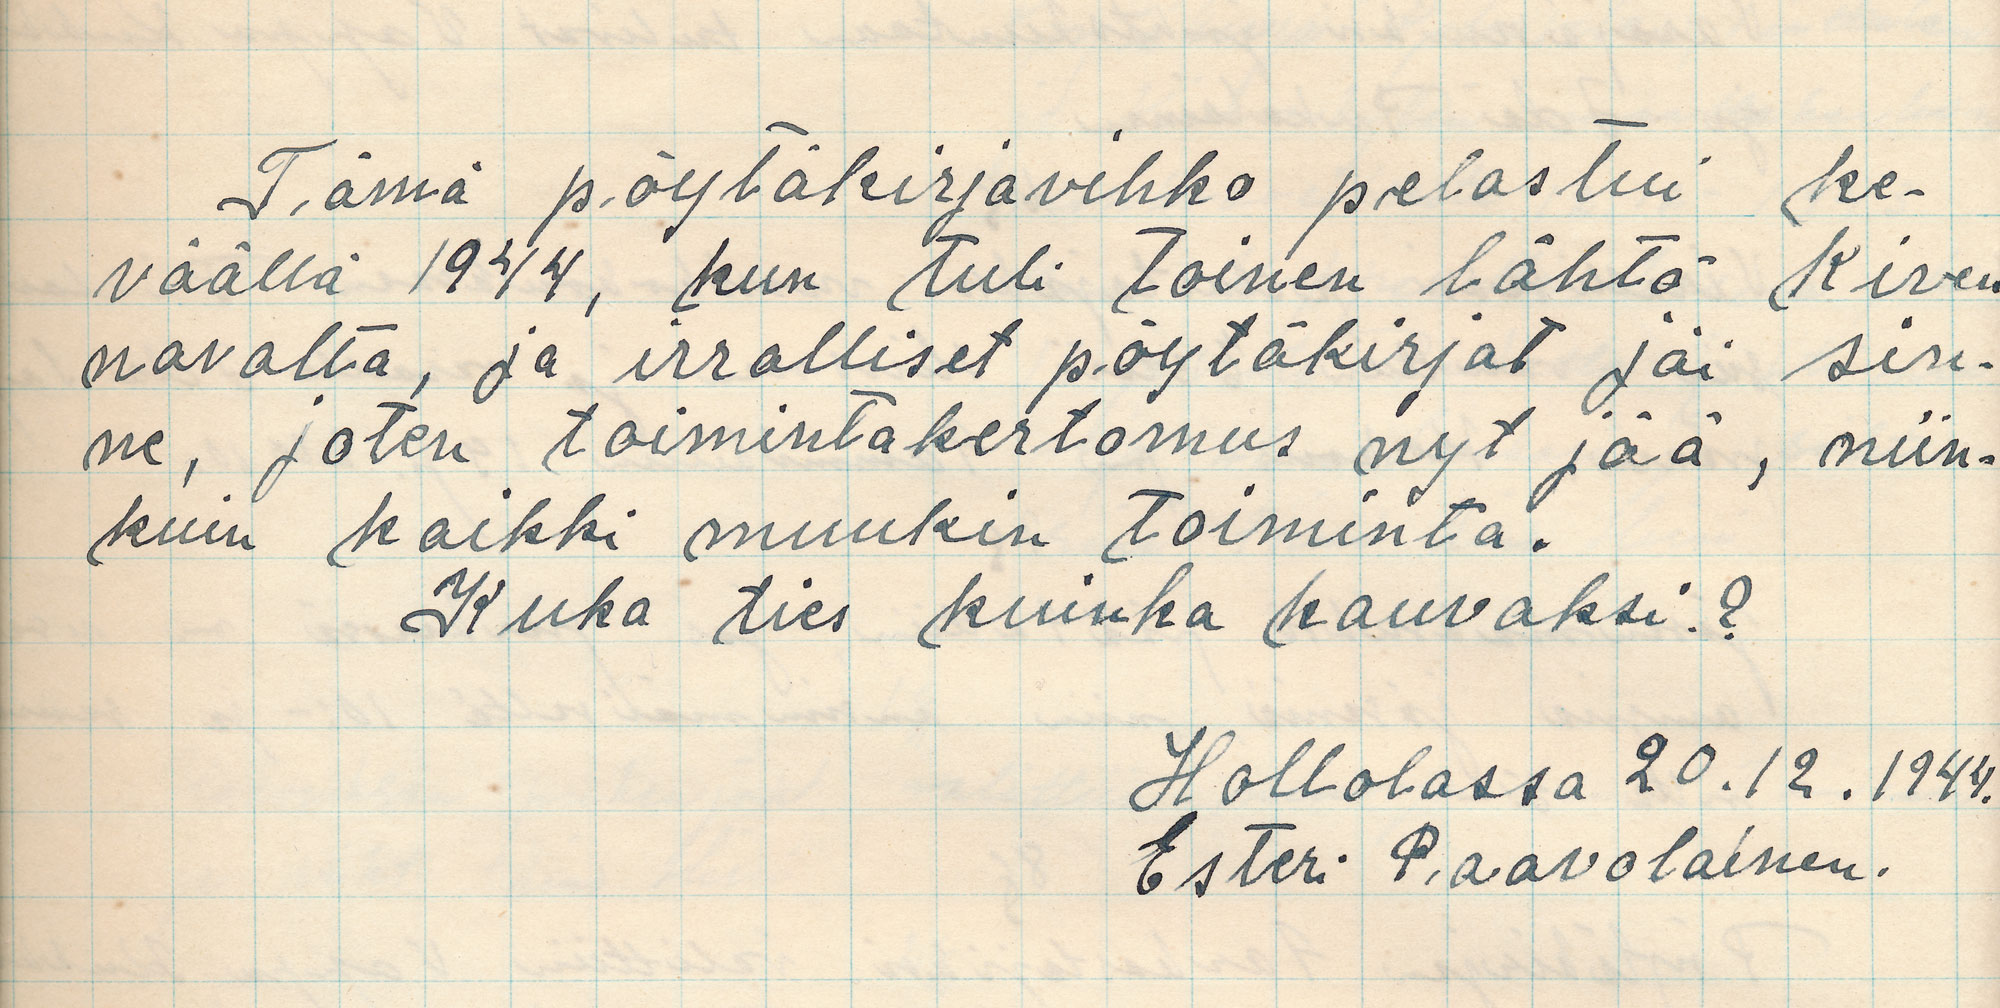 Tämä pöytäkirjavihko pelastui ke-
väällä 1944, kun tuli toinen lähtö Kiven
navalta, ja irralliset pöytäkirjat jäi sin-
ne, joten toimintakertomus nyt jää, niin-
kuin kaikki muukin toiminta.
Kuka ties kuinka kauvaksi.?
Hollolassa 20.12.1944.
Esteri Paavolainen.